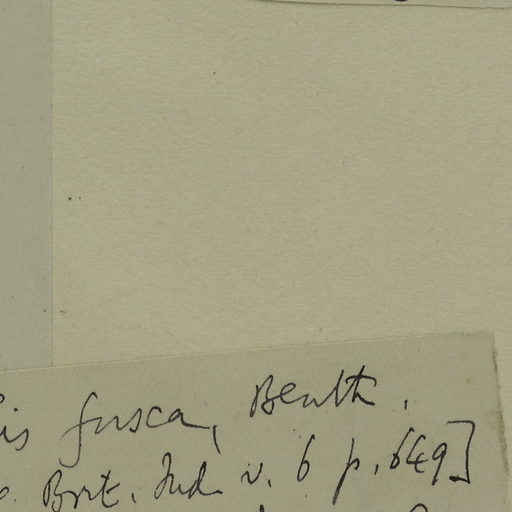 is fusca, Benth.
Brit. Ind. v. 6 p. 649]